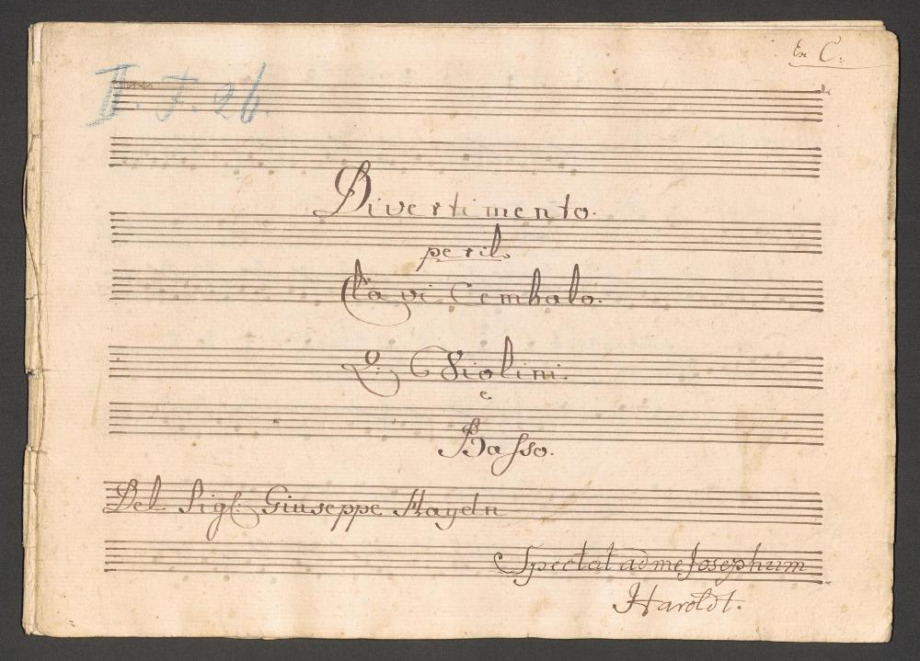 Ex C.
II. J. 26
Divertimento.
per il
Clavi Cembalo.
2. Violini.
e
Basso.
Del Sigl: Giuseppe Haydn
Spectat ad me Josephum
Haroldt.